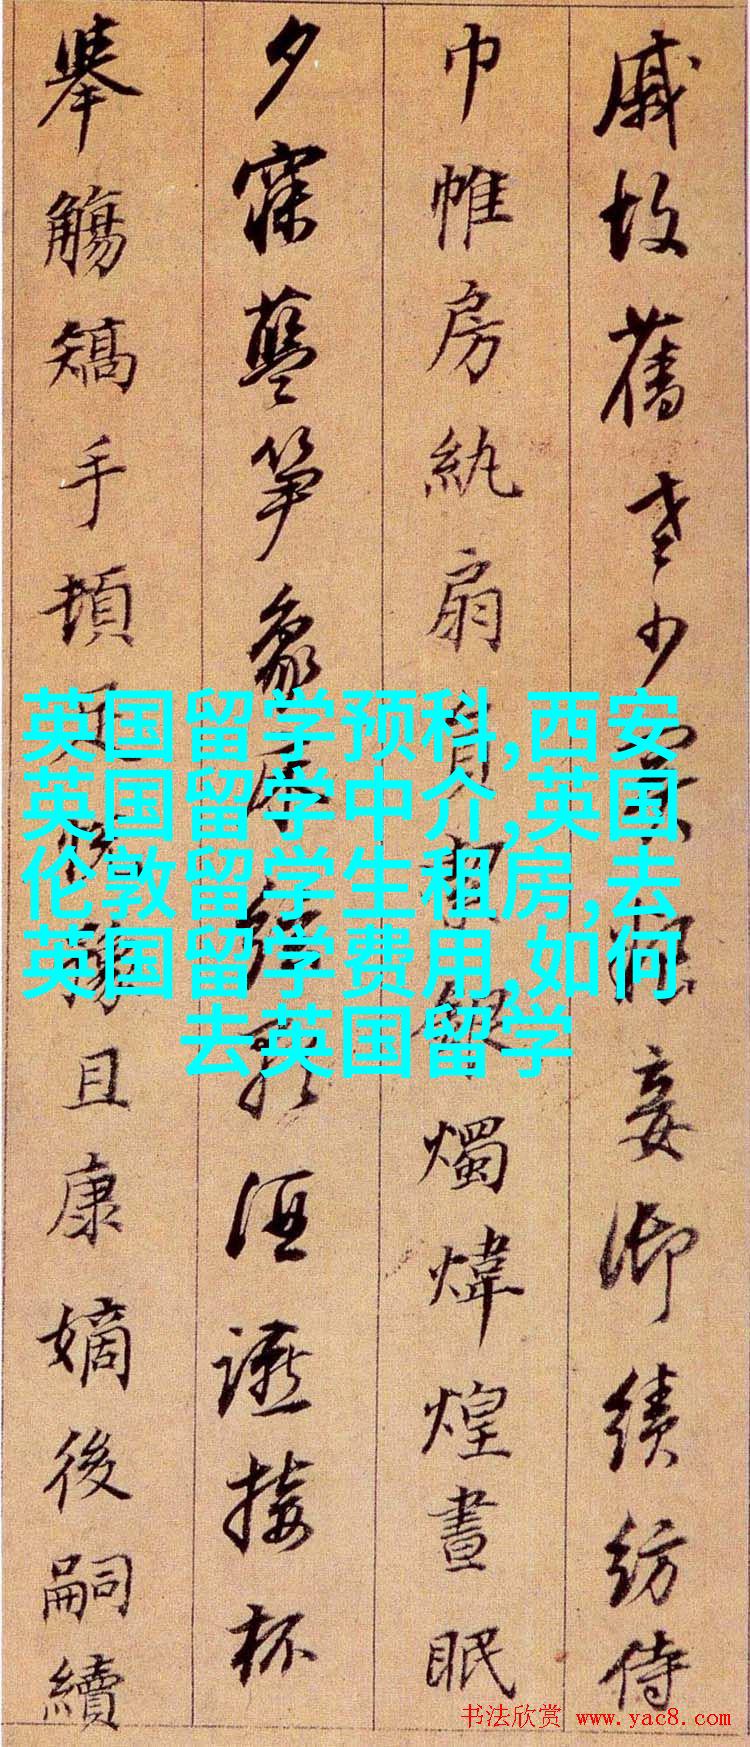 戚故舊老少異糧妾御績紡侍
巾帷房紈扇員銀燭煒煌晝眠
夕寐藍笋象床絃歌酒讌接杯
舉觴矯手頓足悅豫且康嫡後嗣續
英国留学预科,西安
英国留学中介,英国
伦敦留学生租房,去
英国留学费用,如何
去英国留学
书法欣赏 www.yac8.com